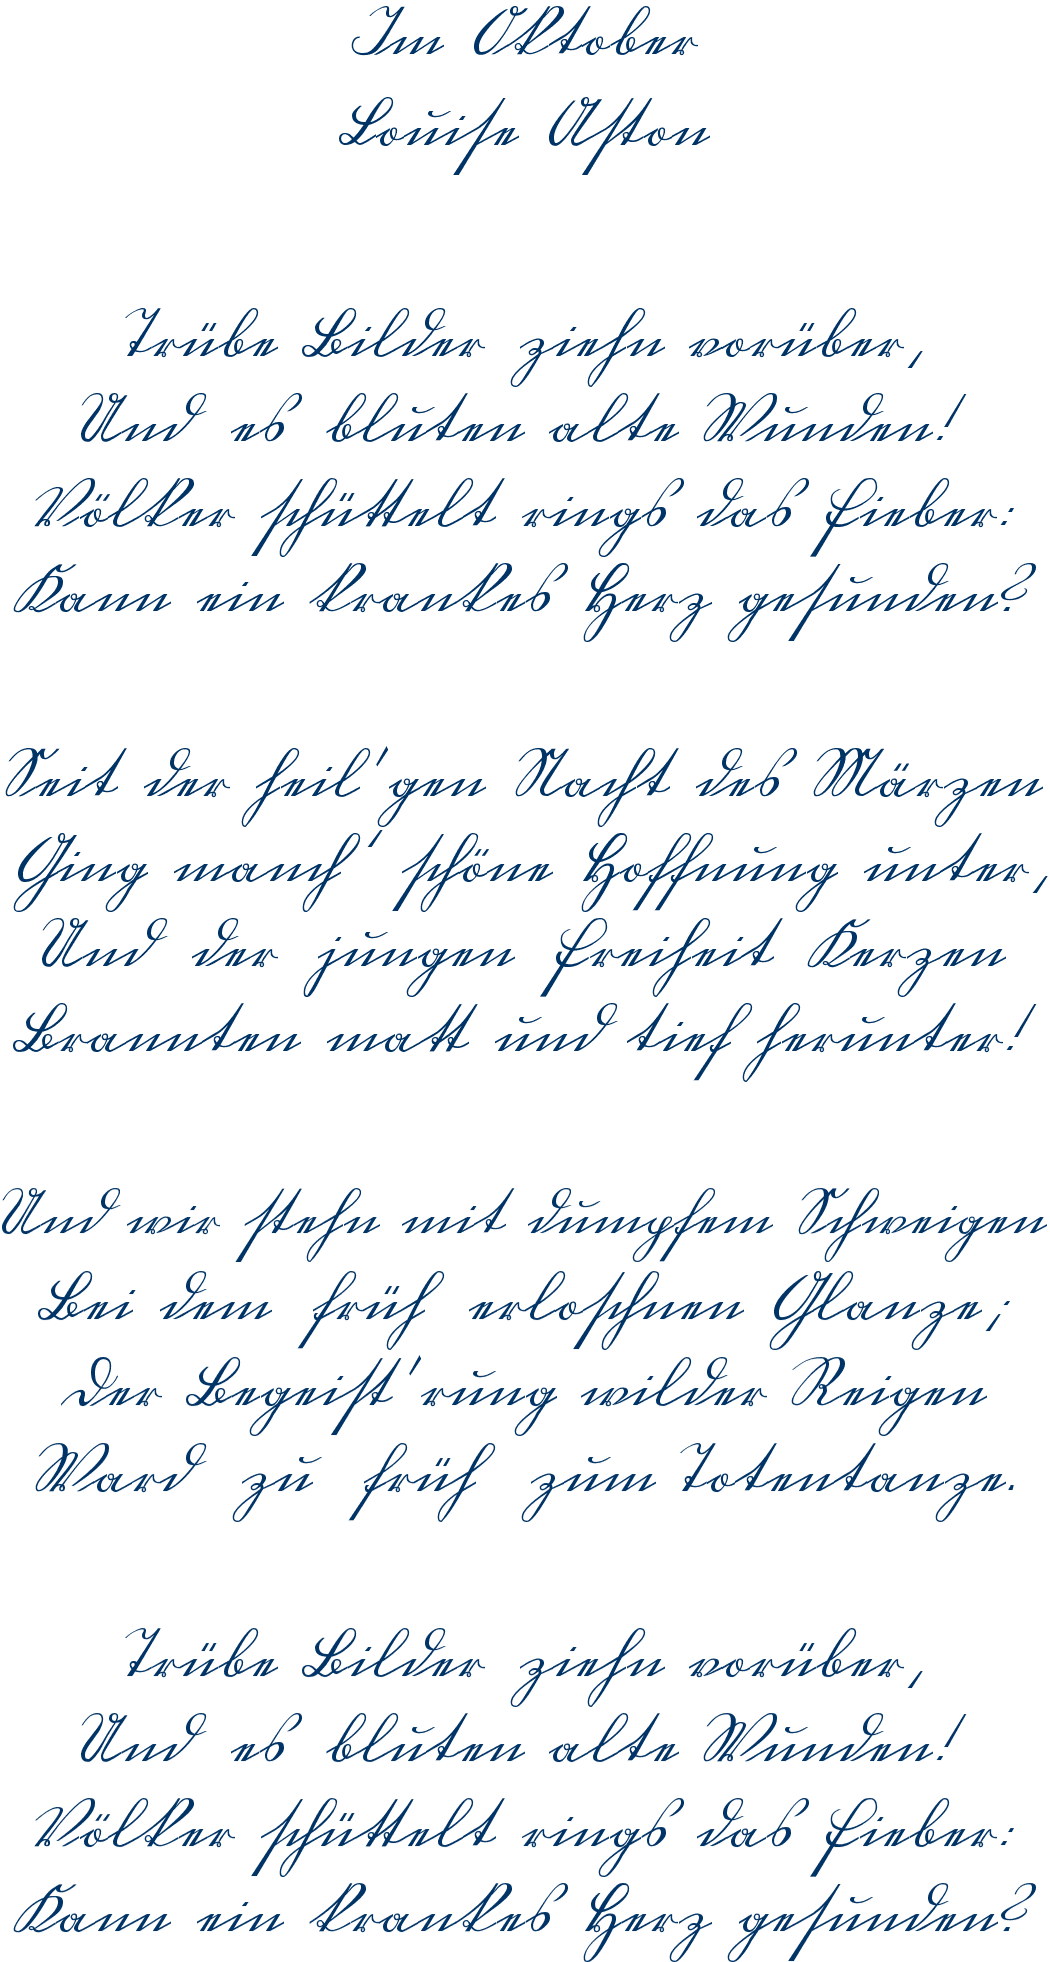 Im Oktober
Louise Aston
Trübe Bilder ziehn vorüber,
Und es bluten alte Wunden!
Völker schüttelt rings das Fieber:
Kann ein krankes Herz gesunden?
Seit der heil'gen Nacht des Märzen
Ging manch' schöne Hoffnung unter,
Und der jungen Freiheit Kerzen
Brannten matt und tief herunter!
Und wir stehn mit dumpfem Schweigen
Bei dem früh erloschnen Glanze;
Der Begeist'rung wilder Reigen
Ward zu früh zum Totentanze.
Trübe Bilder ziehn vorüber,
Und es bluten alte Wunden!
Völker schüttelt rings das Fieber:
Kann ein krankes Herz gesunden?